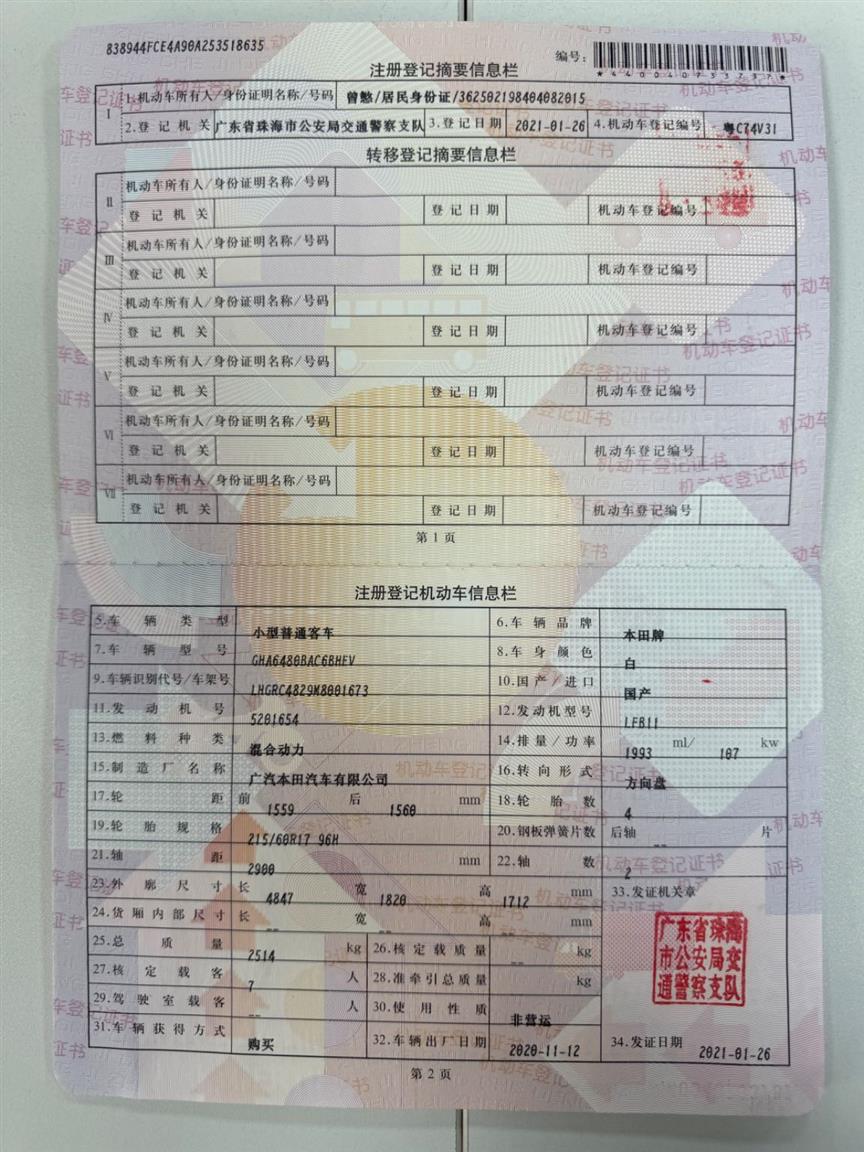 838944FCE4A90A253518635
编号:
*440040733737*
注册登记摘要信息栏
I 1.机动车所有人/身份证明名称/号码 曾憨/居民身份证/362502198404082015
2.登记机关 广东省珠海市公安局交通警察支队 3.登记日期 2021-01-26 4.机动车登记编号 粤C74V31
转移登记摘要信息栏
II 机动车所有人/身份证明名称/号码
登记机关 登记日期 机动车登记编号
III 机动车所有人/身份证明名称/号码
登记机关 登记日期 机动车登记编号
IV 机动车所有人/身份证明名称/号码
登记机关 登记日期 机动车登记编号
V 机动车所有人/身份证明名称/号码
登记机关 登记日期 机动车登记编号
VI 机动车所有人/身份证明名称/号码
登记机关 登记日期 机动车登记编号
VII 机动车所有人/身份证明名称/号码
登记机关 登记日期 机动车登记编号
第1页
注册登记机动车信息栏
5.车辆类型 小型普通客车 6.车辆品牌 本田牌
7.车辆型号 GHA6480BAC6BHEV 8.车身颜色 白
9.车辆识别代号/车架号 LHGRC4829M8001673 10.国产/进口 国产
11.发动机号 5201654 12.发动机型号 LFB11
13.燃料种类 混合动力 14.排量/功率 1993 ml/ 107 kw
15.制造厂名称 广汽本田汽车有限公司 16.转向形式 方向盘
17.轮距 前 1559 后 1560 mm 18.轮胎数 4
19.轮胎规格 215/60R17 96H 20.钢板弹簧片数 后轴 -- 片
21.轴距 2900 mm 22.轴数 2
23.外廓尺寸 长 4847 宽 1820 高 1712 mm 33.发证机关章
24.货厢内部尺寸 长 -- 宽 -- 高 -- mm
25.总质量 2514 kg 26.核定载质量 -- kg
27.核定载客 7 人 28.准牵引总质量 -- kg
29.驾驶室载客 -- 人 30.使用性质 非营运
31.车辆获得方式 购买 32.车辆出厂日期 2020-11-12 34.发证日期 2021-01-26
广东省珠海
市公安局交
通警察支队
第2页